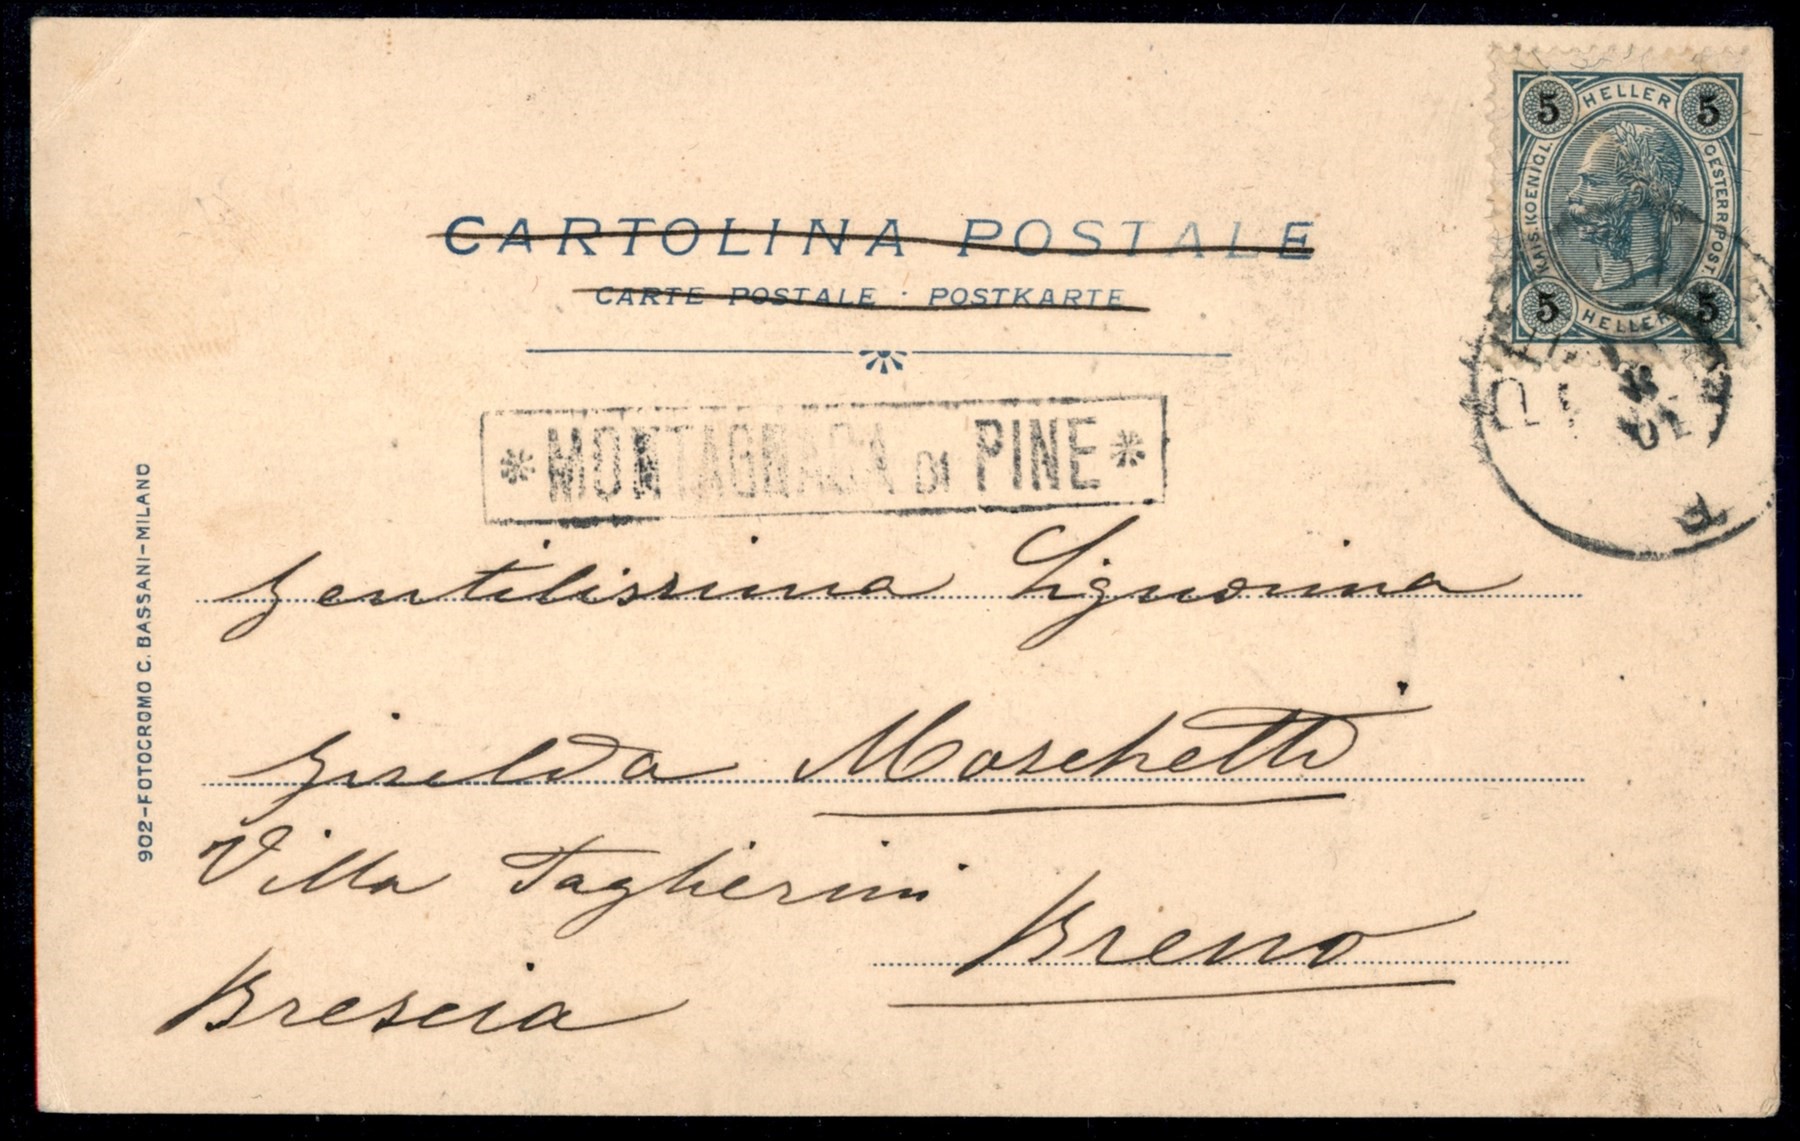 CARTOLINA POSTALE
CARTE POSTALE · POSTKARTE
5 HELLER 5
KAIS. KOENIGL. OESTERR. POST.
5 HELLER 5
* MONTAGNAGA DI PINE *
Gentilissima Signorina
Giselda Moschetti
Villa Taglierini
Breno
Brescia
902-FOTOCROMO C. BASSANI-MILANO